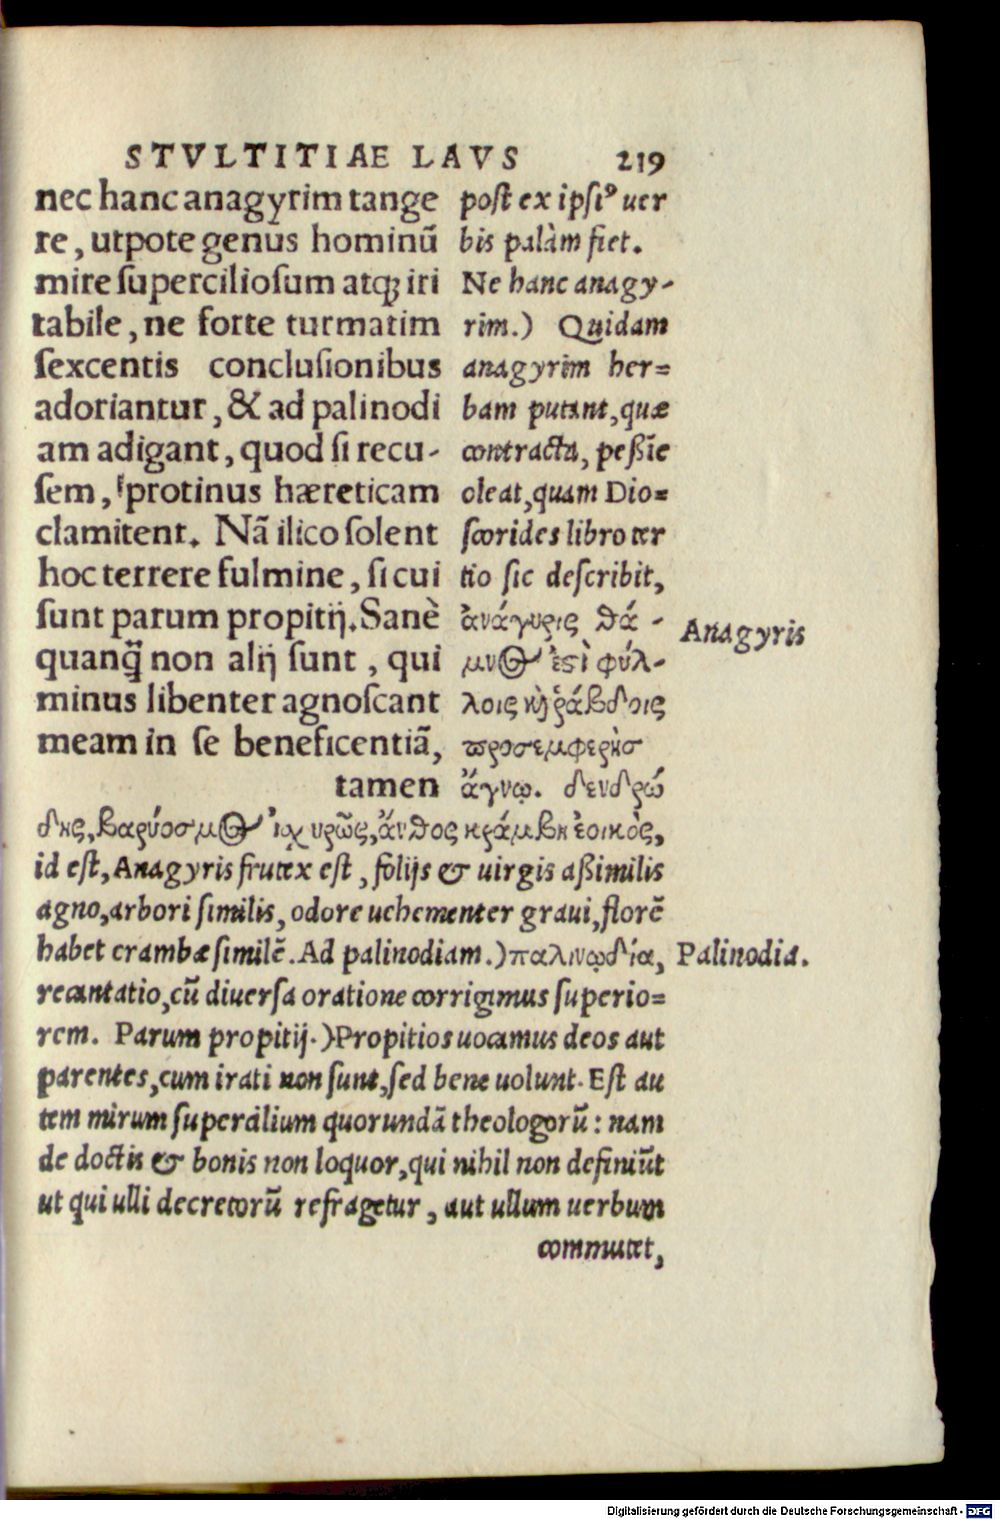 STVLTITIAE LAVS 219
nec hanc anagyrim tange
re, utpote genus hominũ
mire superciliosum atq; iri
tabile, ne forte turmatim
sexcentis conclusionibus
adoriantur, & ad palinodi
am adigant, quod si recu-
sem, protinus hæreticam
clamitent. Nã ilico solent
hoc terrere fulmine, si cui
sunt parum propitij. Sanè
quanq̃ non alij sunt, qui
minus libenter agnoscant
meam in se beneficentiã,
tamen
post ex ipsiꝰ uer
bis palàm fiet.
Ne hanc anagy-
rim.) Quidam
anagyrim her=
bam putant, quæ
contracta, peßĩe
oleat, quam Dio=
scorides libro ter
tio sic describit,
ἀνάγυρις θά-
μνος ἐστὶ φύλ-
λοις κỳ ῥάβδοις
προσεμφερὴσ
ἄγνῳ. δενδρώ
δης, βαρύοσμος ἰχυρῶς, ἄνθος κράμβη ἐοικὸς,
id est, Anagyris frutex est, folijs & uirgis aßimilis
agno, arbori similis, odore uehementer graui, florẽ
habet crambæ similẽ. Ad palinodiam.) παλινῳδία,
recantatio, cũ diuersa oratione corrigimus superio=
rem. Parum propitij.) Propitios uocamus deos aut
parentes, cum irati non sunt, sed bene uolunt. Est au
tem mirum supercilium quorundã theologorũ: nam
de doctis & bonis non loquor, qui nihil non definiũt
ut qui ulli decretorũ refragetur, aut ullum uerbum
commutet,
Anagyris
Palinodia.
Digitalisierung gefördert durch die Deutsche Forschungsgemeinschaft - DFG